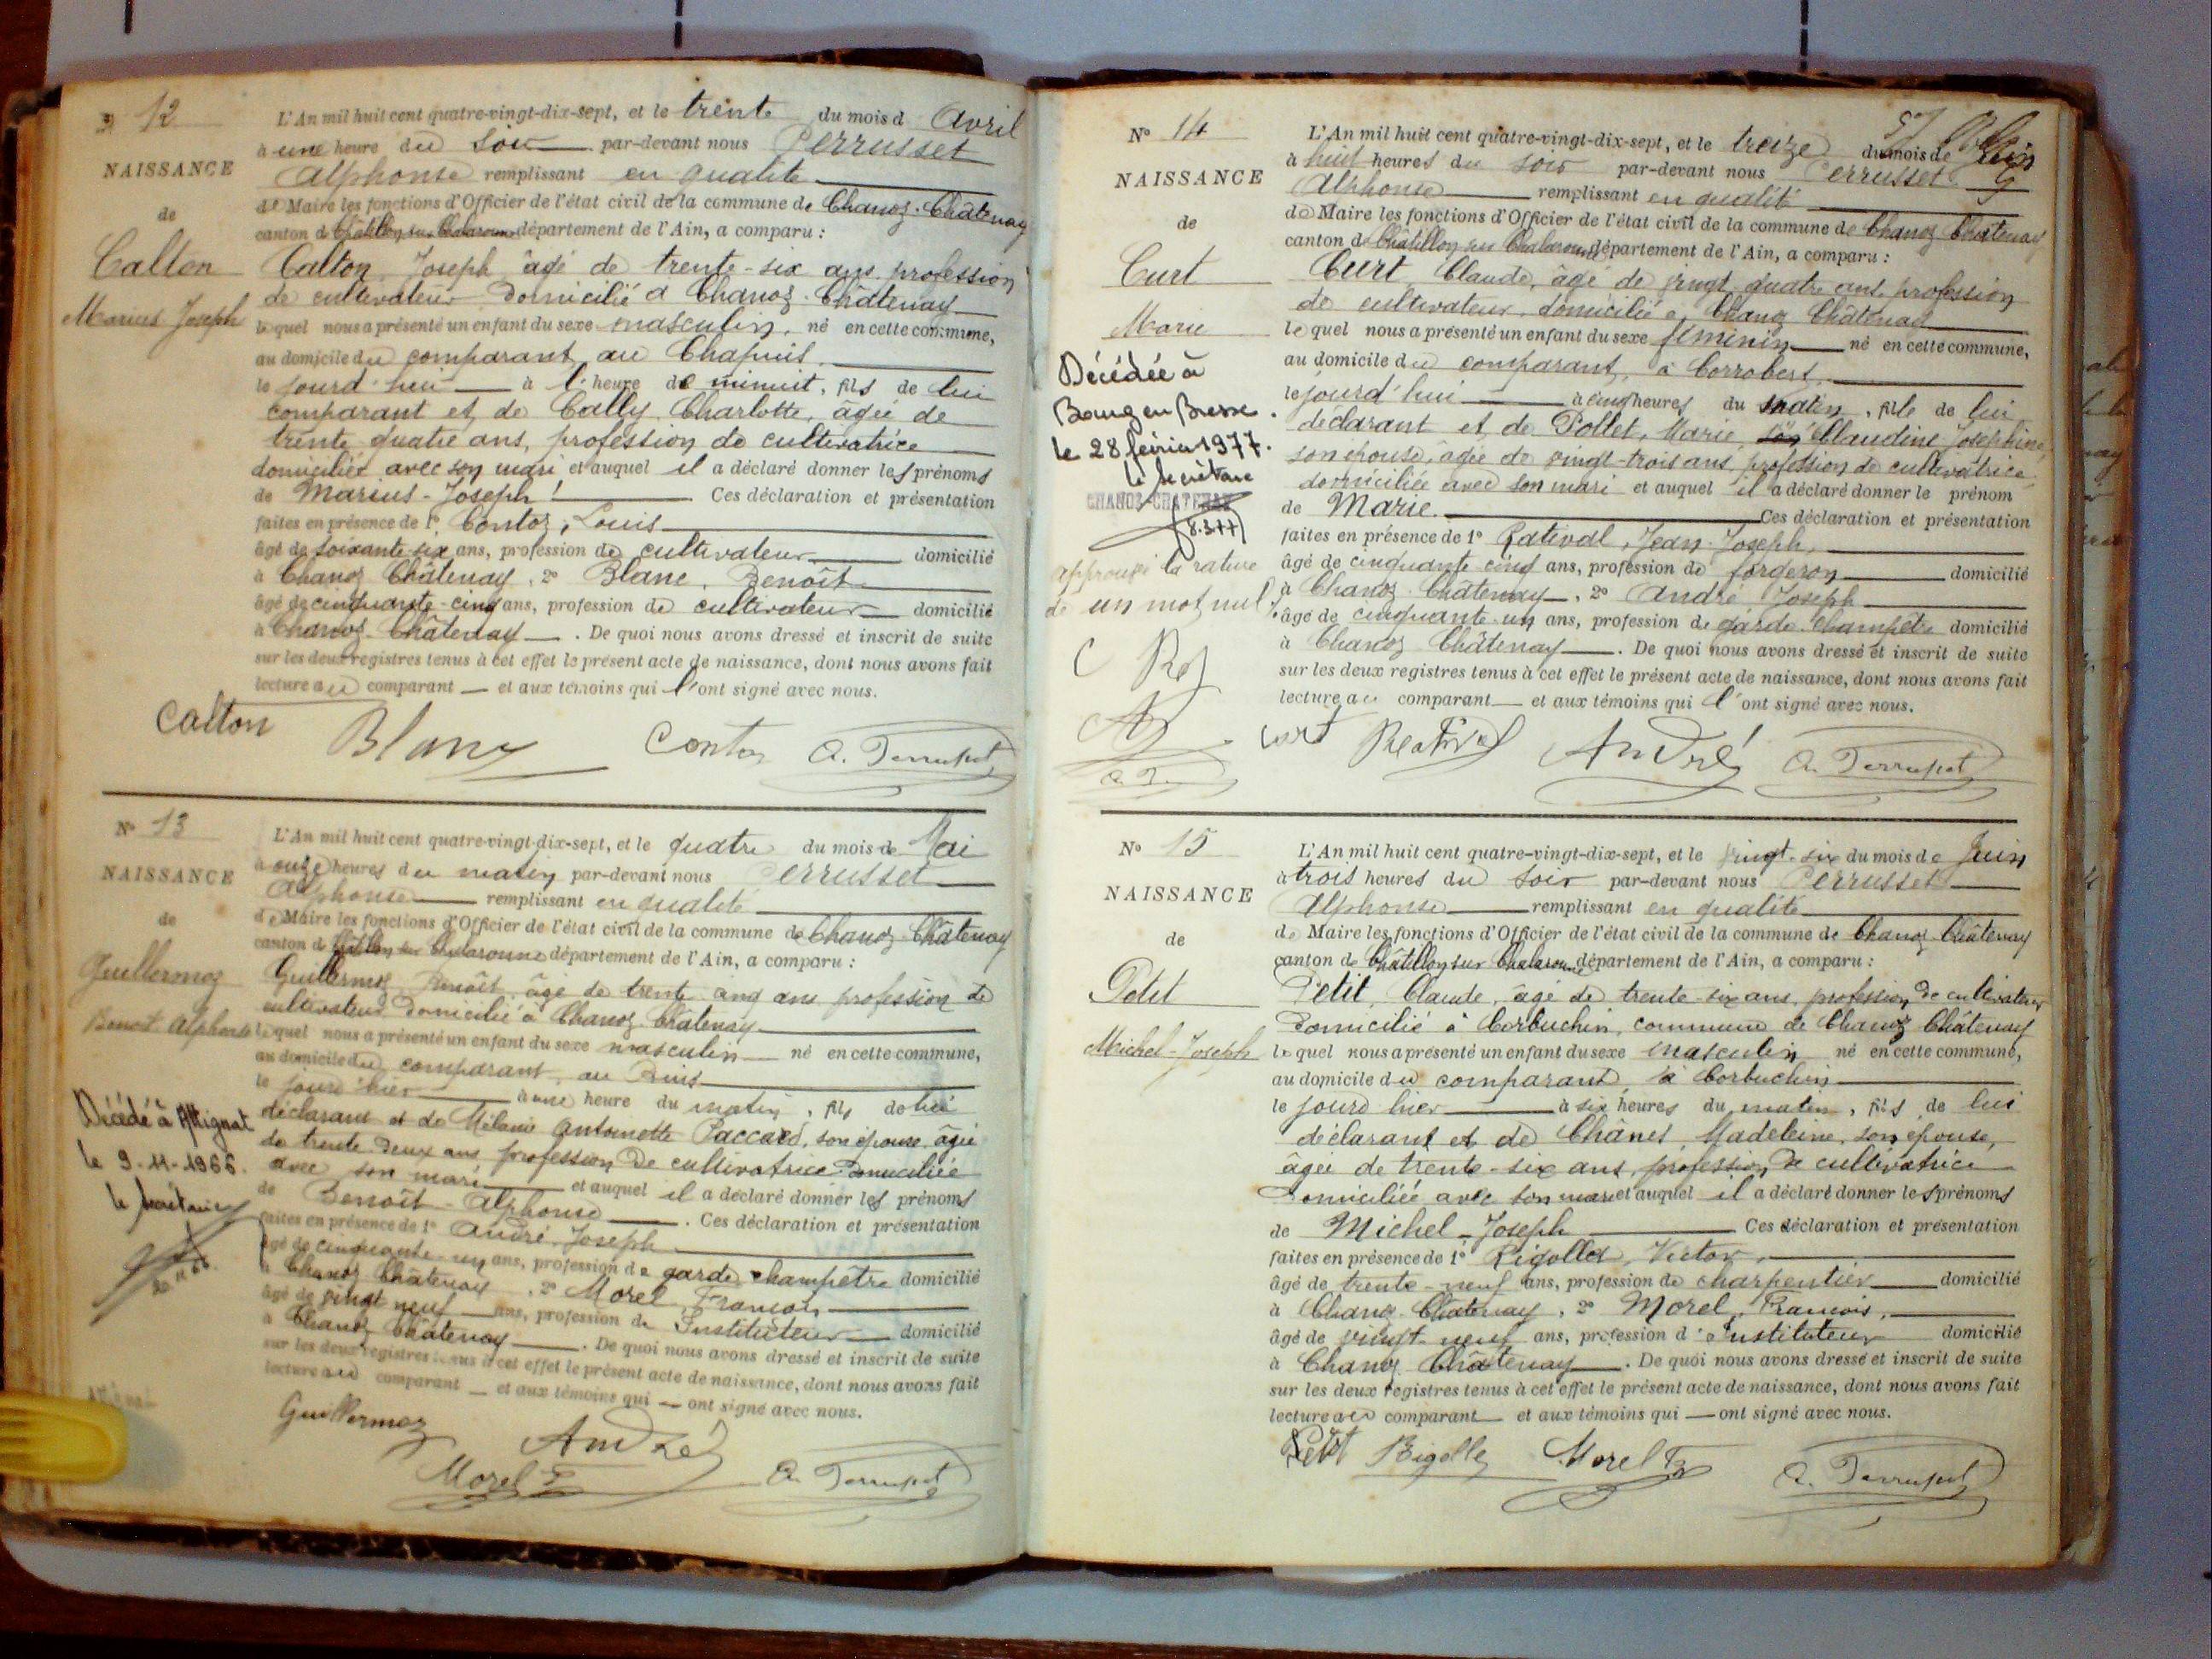 N° 12
NAISSANCE
de
Calton
Marius Joseph
L'An mil huit cent quatre-vingt-dix-sept, et le trente du mois d Avril
à une heure du soir par-devant nous Perrusset
Alphonse remplissant en qualité
de Maire les fonctions d'Officier de l'état civil de la commune de Chanoz-Châtenay
canton de Châtillon sur Chalaronne département de l'Ain, a comparu :
Calton Joseph âgé de trente-six ans profession
de cultivateur domicilié à Chanoz-Châtenay
lequel nous a présenté un enfant du sexe masculin, né en cette commune,
au domicile du comparant au Chapuis
le jourd'hui à l'heure de minuit, fils de lui
comparant et de Cally Charlotte, âgée de
trente quatre ans, profession de cultivatrice
domiciliée avec son mari et auquel il a déclaré donner les prénoms
de Marius-Joseph Ces déclaration et présentation
faites en présence de 1° Contoz, Louis
âgé de soixante-six ans, profession de cultivateur domicilié
à Chanoz Châtenay, 2° Blanc, Benoît
âgé de cinquante-cinq ans, profession de cultivateur domicilié
à Chanoz-Châtenay. De quoi nous avons dressé et inscrit de suite
sur les deux registres tenus à cet effet le présent acte de naissance, dont nous avons fait
lecture au comparant et aux témoins qui l'ont signé avec nous.
Calton Blanc Contoz A. Perrusset
N° 13
NAISSANCE
de
Guillermoz
Benoit Alphonse
Décédé à Attignat
le 9-11-1966.
le Secrétaire
L'An mil huit cent quatre-vingt-dix-sept, et le quatre du mois de Mai
à onze heures du matin par-devant nous Perrusset
Alphonse remplissant en qualité
de Maire les fonctions d'Officier de l'état civil de la commune de Chanoz-Châtenay
canton de Châtillon sur Chalaronne département de l'Ain, a comparu :
Guillermoz Benoît âgé de trente cinq ans profession de
cultivateur domicilié à Chanoz Châtenay
lequel nous a présenté un enfant du sexe masculin né en cette commune,
au domicile du comparant au
le jourd'hier à une heure du matin, fils de lui
déclarant et de Mélanie Antoinette Paccard, son épouse âgée
de trente deux ans profession de cultivatrice domiciliée
avec son mari et auquel il a déclaré donner les prénoms
de Benoît-Alphonse. Ces déclaration et présentation
faites en présence de 1° André Joseph
âgé de cinquante-un ans, profession de garde champêtre domicilié
à Chanoz Châtenay, 2° Morel François
âgé de vingt neuf ans, profession de Instituteur domicilié
à Chanoz Châtenay. De quoi nous avons dressé et inscrit de suite
sur les deux registres tenus à cet effet le présent acte de naissance, dont nous avons fait
lecture au comparant et aux témoins qui ont signé avec nous.
Guillermoz André
Morel F A. Perrusset
57
N° 14
NAISSANCE
de
Curt
Marie
Décédée à
Bourg en Bresse.
le 28 février 1977.
le secrétaire
CHANOZ-CHATENAY
8.3.77
approuvé la rature
de un mot nul
L'An mil huit cent quatre-vingt-dix-sept, et le treize du mois de Juin
à huit heures du soir par-devant nous Perrusset
Alphonse remplissant en qualité
de Maire les fonctions d'Officier de l'état civil de la commune de Chanoz Châtenay
canton de Châtillon sur Chalaronne département de l'Ain, a comparu :
Curt Claude, âgé de vingt quatre ans, profession
de cultivateur, domicilié à Chanoz Châtenay
lequel nous a présenté un enfant du sexe féminin né en cette commune,
au domicile du comparant, à Corrobert,
le jourd'hui à cinq heures du matin, fille de lui
déclarant et de Pollet, Marie Claudine Joséphine,
son épouse, âgée de vingt-trois ans, profession de cultivatrice
domiciliée avec son mari et auquel il a déclaré donner le prénom
de Marie. Ces déclaration et présentation
faites en présence de 1° Rativel, Jean-Joseph,
âgé de cinquante cinq ans, profession de forgeron domicilié
à Chanoz-Châtenay, 2° André Joseph
âgé de cinquante-un ans, profession de garde-champêtre domicilié
à Chanoz Châtenay. De quoi nous avons dressé et inscrit de suite
sur les deux registres tenus à cet effet le présent acte de naissance, dont nous avons fait
lecture au comparant et aux témoins qui l'ont signé avec nous.
Curt Rativel André A. Perrusset
N° 15
NAISSANCE
de
Petit
Michel-Joseph
L'An mil huit cent quatre-vingt-dix-sept, et le vingt-six du mois de Juin
à trois heures du soir par-devant nous Perrusset
Alphonse remplissant en qualité
de Maire les fonctions d'Officier de l'état civil de la commune de Chanoz-Châtenay
canton de Châtillon sur Chalaronne département de l'Ain, a comparu :
Petit, Claude, âgé de trente-six ans, profession de cultivateur
domicilié à Corbuchin, commune de Chanoz Châtenay
lequel nous a présenté un enfant du sexe masculin né en cette commune,
au domicile du comparant, à Corbuchin
le jourd'hier à six heures du matin, fils de lui
déclarant et de Chânel, Madeleine, son épouse,
âgée de trente-six ans, profession de cultivatrice
domiciliée avec son mari et auquel il a déclaré donner les prénoms
de Michel-Joseph Ces déclaration et présentation
faites en présence de 1° Rigollet, Victor,
âgé de trente-neuf ans, profession de charpentier domicilié
à Chanoz-Châtenay, 2° Morel, François,
âgé de vingt-neuf ans, profession d'Instituteur domicilié
à Chanoz Châtenay. De quoi nous avons dressé et inscrit de suite
sur les deux registres tenus à cet effet le présent acte de naissance, dont nous avons fait
lecture au comparant et aux témoins qui ont signé avec nous.
Petit Rigollet Morel F A. Perrusset